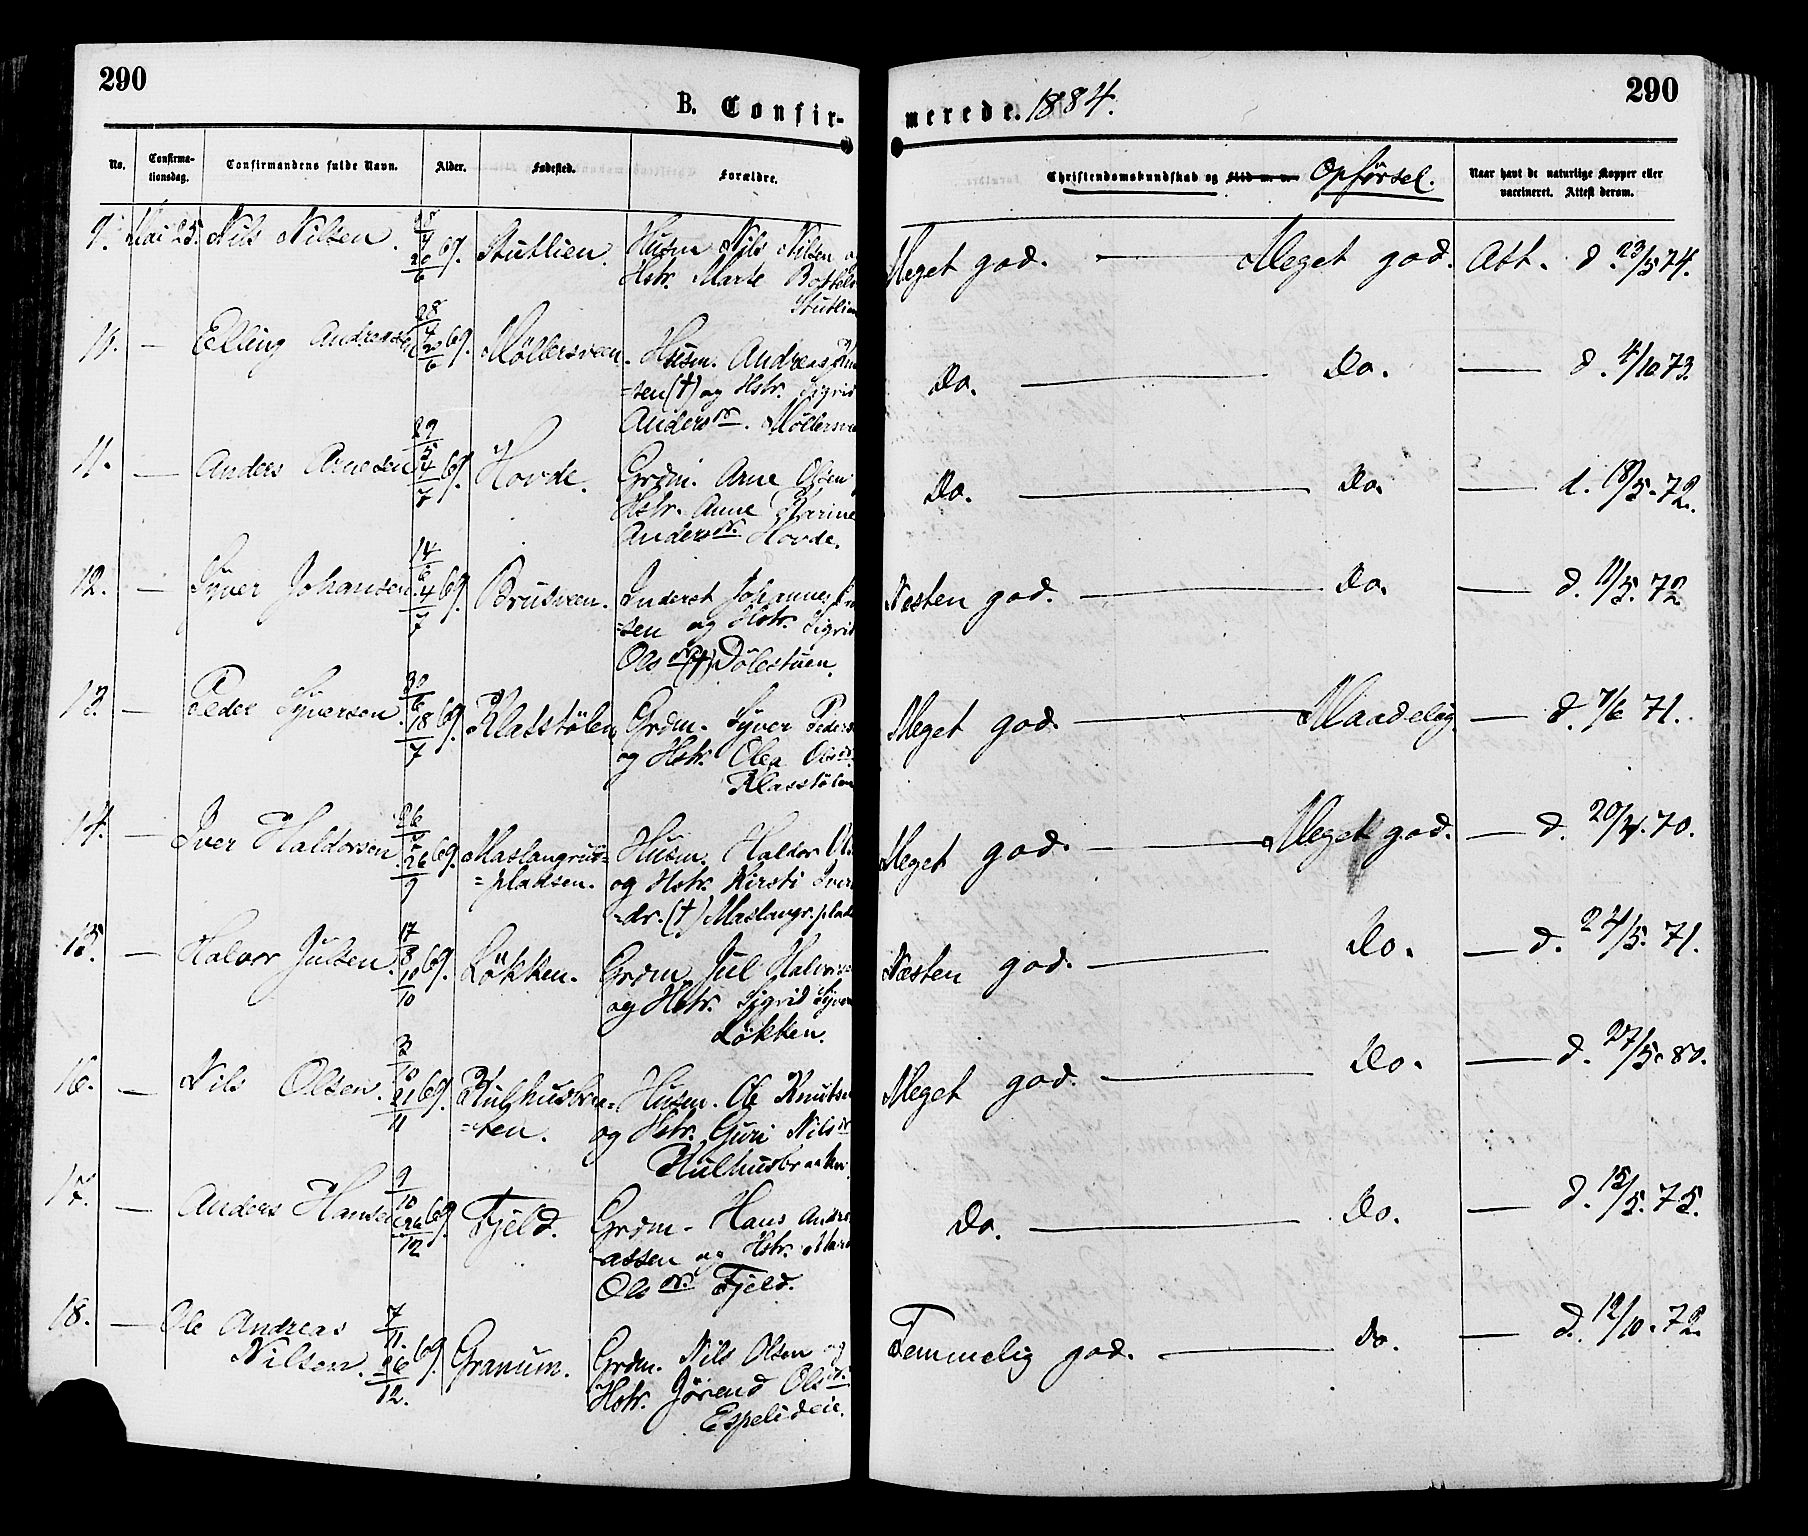 290
B. Confir-
merede. 1884.
290
No.
Confirma-
tionsdag.
Confirmandens fulde Navn.
Alder.
Fødested.
Forældre.
Christendomskundskab og Flid m. v. Opførsel.
Naar havt de naturlige Kopper eller
vaccineret. Attest derom.
9. Mai 25. Nils Nilsen. 69. Stutlien. Husm Nils Nilsen og
Hstr. Marte
Stutlien
Meget god. — Meget god. Att. d. 23/5 74.
10. — Elling Andreassen 28/4 20/6 69. Möllersveen. Husm. Andreas
=sen (†) og Hstr. Sigrid
Andersdr. Möllersve
Do. — Do. — d. 4/10 73.
11. — Anders Arnesen 29/5 4/7 69. Hovde. Grdm. Arne Olsen
Hstr. Anne Karine
Andersdr. Hovde.
Do. — Do. — d. 18/5. 72.
12. — Syver Johansen 14/6 4/7 69. Brusveen. Inderst Johannes
-sen og Hstr. Sigrid
Olsdr (†) Dölestuen.
Næsten god. — Do. — d. 11/5. 72
13. — Peder Syversen. 30/6 18/7 69. Klasstölen. Grdm. Syver Peders
og Hstr. Olea Olsdr.
Klasstölen
Meget god. — Maadelig. — d. 7/6 71.
14. — Iver Haldorsen. 26/9 69. Maslangrud=
=pladsen. Husm. Haldor
og Hstr. Kirsti Ivers
-dr. (†) Maslangr.plads
Meget god. — Meget god. — d. 20/4. 70.
15. — Halvor Julsen. 17/8 10/10 69. Lökken. Grdm. Jul Halvors
og Hstr. Sigrid Syver
Lökken.
Næsten god. — Do. — d. 24/5. 71.
16. — Nils Olsen. 21/11 69. Hulhusbra=
=ten. Husm. Ole Knutsen
og Hstr. Guri Nilsdr
Hulhusbraaten
Meget god. — Do. — d. 27/5. 80.
17. — Anders Hansen 9/10 26/12 69. Fjeld. Grdm. Hans Andre
-assen og Hstr. Marit
Olsdr. Fjeld.
Do. — Do. — d. 15/5. 75.
18. — Ole Andreas
Nilsen. 7/11 26/12 69. Granum. Grdm. Nils Olsen og
Hstr. Jörend Olsdr.
Espelideie.
Temmelig god. — Do. — d. 12/10. 72.